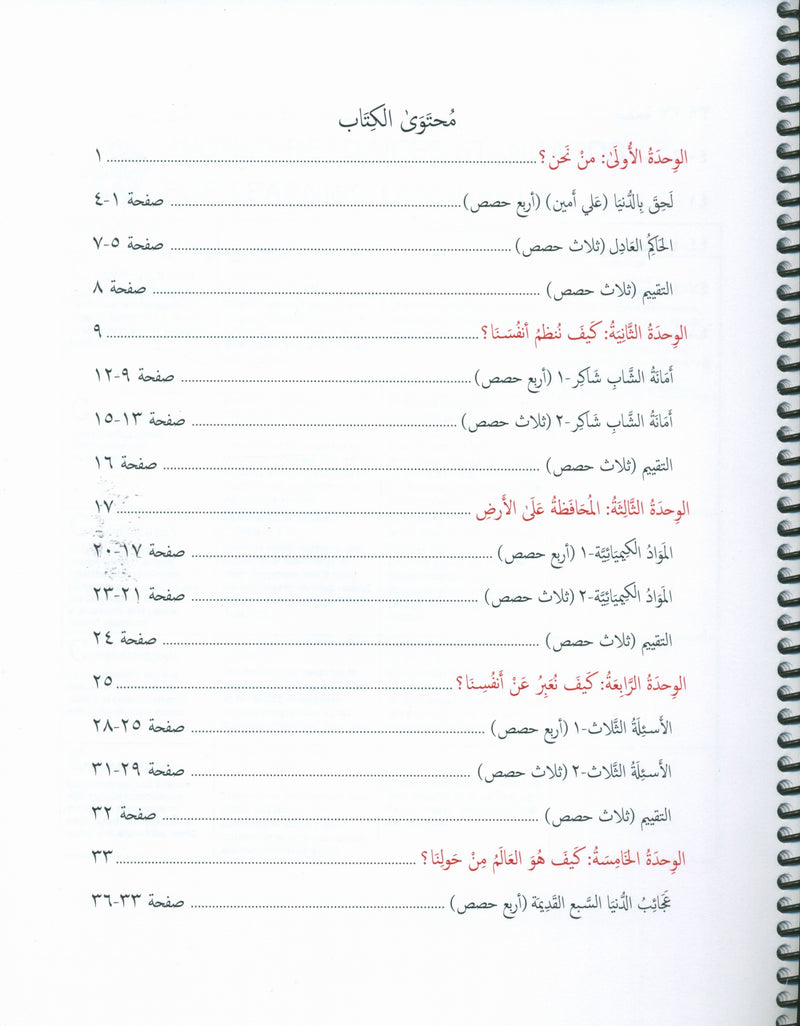 مُحتَوَىٰ الكِتَاب
الوِحدَةُ الأُولَىٰ: مَنْ نَحن؟ ١
لَحِقَ بِالدُّنيَا (عَلي أَمين) (أربع حصص) صفحة ١-٤
الحَاكِمُ العَادِل (ثلاث حصص) صفحة ٥-٧
التقييم (ثلاث حصص) صفحة ٨
الوِحدَةُ الثَّانِيَةُ: كَيفَ نُنظمُ أنفُسَنَا؟ ٩
أمَانَةُ الشَّابِ شَاكِر-١ (أربع حصص) صفحة ٩-١٢
أمَانَةُ الشَّابِ شَاكِر-٢ (ثلاث حصص) صفحة ١٣-١٥
التقييم (ثلاث حصص) صفحة ١٦
الوِحدَةُ الثَّالِثَةُ: المُحَافَظَةُ عَلَىٰ الأَرضِ ١٧
المَوَادُ الكِيمِيَائِيَّة-١ (أربع حصص) صفحة ١٧-٢٠
المَوَادُ الكِيمِيَائِيَّة-٢ (ثلاث حصص) صفحة ٢١-٢٣
التقييم (ثلاث حصص) صفحة ٢٤
الوِحدَةُ الرَّابِعَةُ: كَيفَ نُعَبِرُ عَنْ أَنفُسِنَا؟ ٢٥
الأَسئِلَةُ الثَّلاث-١ (أربع حصص) صفحة ٢٥-٢٨
الأَسئِلَةُ الثَّلاث-٢ (ثلاث حصص) صفحة ٢٩-٣١
التقييم (ثلاث حصص) صفحة ٣٢
الوِحدَةُ الخَامِسَةُ: كَيفَ هُوَ العَالَمُ مِنْ حَولِنَا؟ ٣٣
عَجَائِبُ الدُّنيَا السَّبع القَدِيمَة (أربع حصص) صفحة ٣٣-٣٦